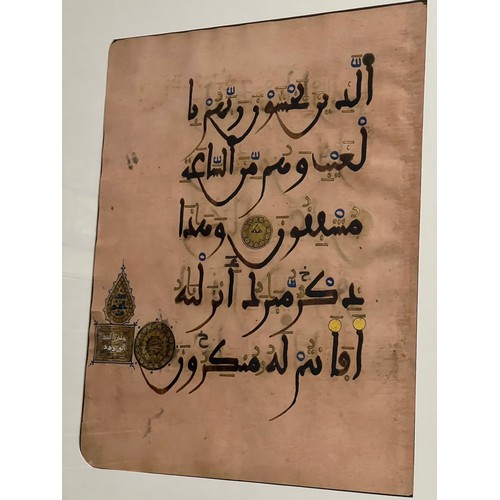 ٱلَّذِينَ يَخْشَوْنَ رَبَّهُم بِا
لْغَيْبِ وَهُم مِّنَ ٱلسَّاعَةِ
مُشْفِقُونَ وَهَٰذَا
ذِكْرٌ مُّبَٰرَكٌ أَنزَلْنَٰهُ
أَفَأَنتُمْ لَهُۥ مُنكِرُونَ